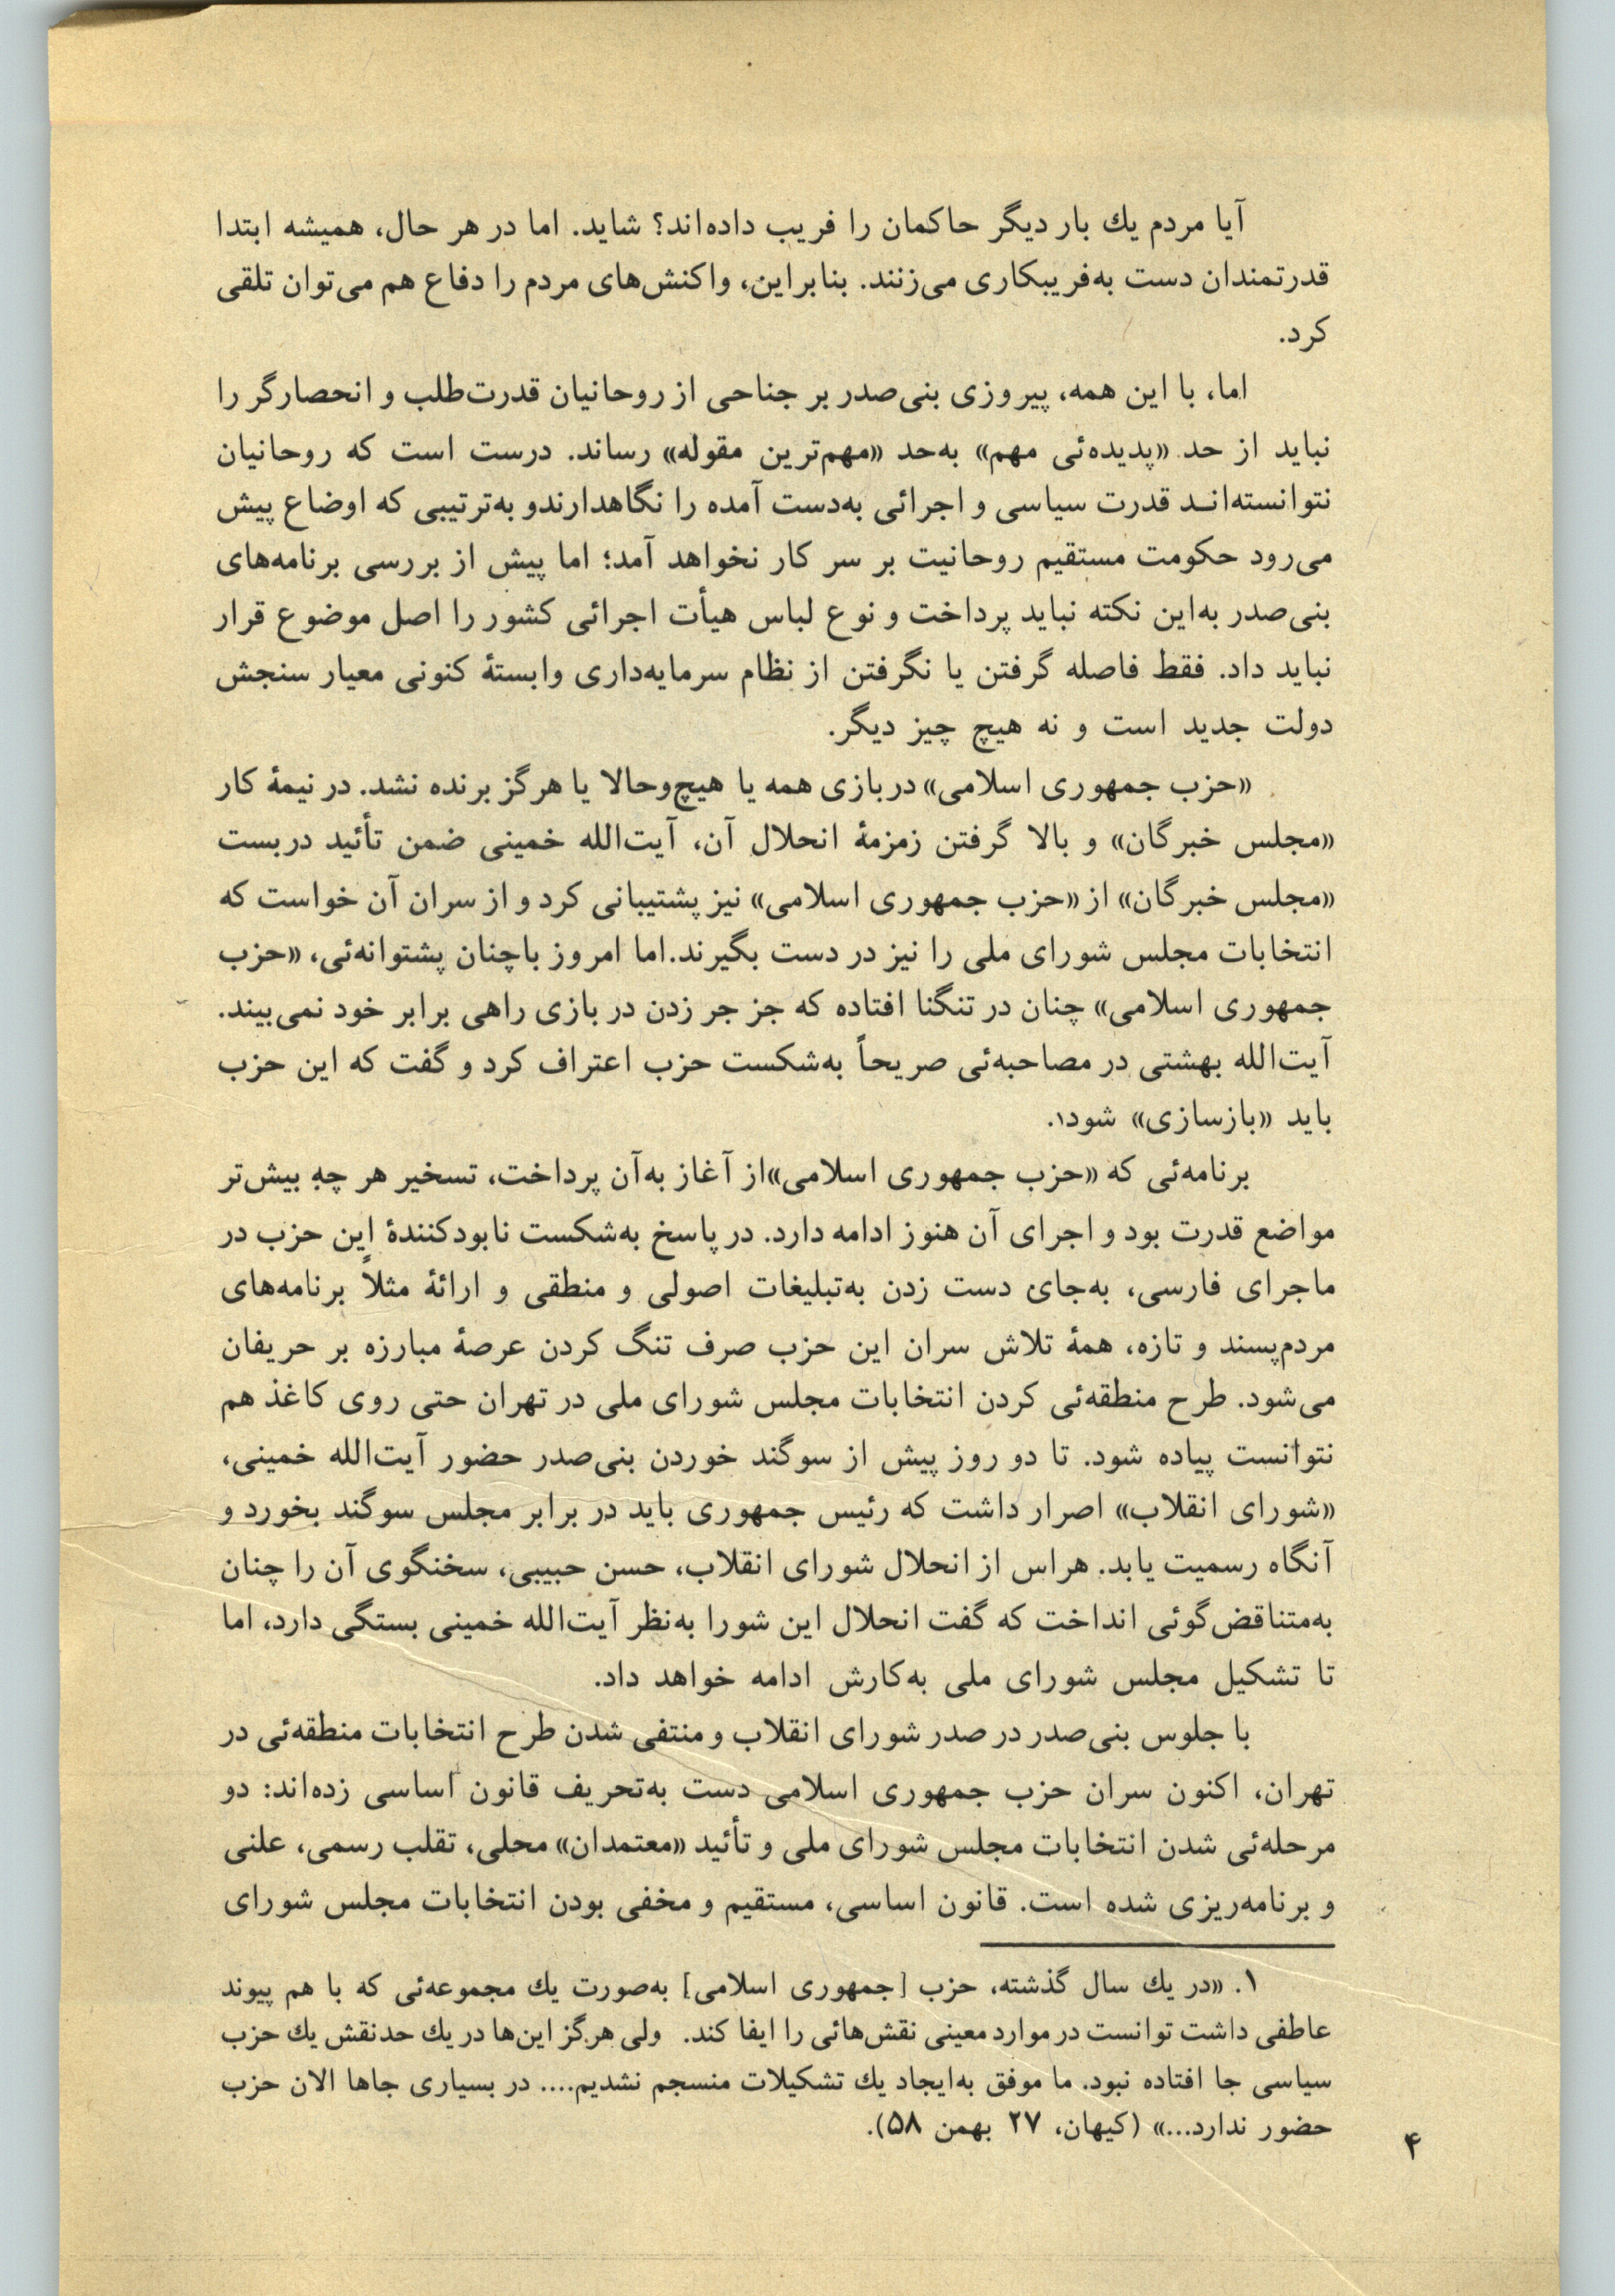 آیا مردم یك بار دیگر حاکمان را فریب داده‌اند؟ شاید. اما در هر حال، همیشه ابتدا
قدرتمندان دست به‌فریبکاری می‌زنند. بنابراین، واکنش‌های مردم را دفاع هم می‌توان تلقی
کرد.
اما، با این همه، پیروزی بنی‌صدر بر جناحی از روحانیان قدرت‌طلب و انحصارگر را
نباید از حد «پدیده‌ئی مهم» به‌حد «مهم‌ترین مقوله» رساند. درست است که روحانیان
نتوانسته‌انـد قدرت سیاسی و اجرائی به‌دست آمده را نگاهدارندو به‌ترتیبی که اوضاع پیش
می‌رود حکومت مستقیم روحانیت بر سر کار نخواهد آمد؛ اما پیش از بررسی برنامه‌های
بنی‌صدر به‌این نکته نباید پرداخت و نوع لباس هیأت اجرائی کشور را اصل موضوع قرار
نباید داد. فقط فاصله گرفتن یا نگرفتن از نظام سرمایه‌داری وابستهٔ کنونی معیار سنجش
دولت جدید است و نه هیچ چیز دیگر.
«حزب جمهوری اسلامی» دربازی همه یا هیچ‌وحالا یا هرگز برنده نشد. در نیمهٔ کار
«مجلس خبرگان» و بالا گرفتن زمزمهٔ انحلال آن، آیت‌الله خمینی ضمن تأئید دربست
«مجلس خبرگان» از «حزب جمهوری اسلامی» نیز پشتیبانی کرد و از سران آن خواست که
انتخابات مجلس شورای ملی را نیز در دست بگیرند.اما امروز باچنان پشتوانه‌ئی، «حزب
جمهوری اسلامی» چنان در تنگنا افتاده که جز جر زدن در بازی راهی برابر خود نمی‌بیند.
آیت‌الله بهشتی در مصاحبه‌ئی صریحاً به‌شکست حزب اعتراف کرد و گفت که این حزب
باید «بازسازی» شود۱.
برنامه‌ئی که «حزب جمهوری اسلامی»از آغاز به‌آن پرداخت، تسخیر هر چه بیش‌تر
مواضع قدرت بود و اجرای آن هنوز ادامه دارد. در پاسخ به‌شکست نابودکنندهٔ این حزب در
ماجرای فارسی، به‌جای دست زدن به‌تبلیغات اصولی و منطقی و ارائهٔ مثلاً برنامه‌های
مردم‌پسند و تازه، همهٔ تلاش سران این حزب صرف تنگ کردن عرصهٔ مبارزه بر حریفان
می‌شود. طرح منطقه‌ئی کردن انتخابات مجلس شورای ملی در تهران حتی روی کاغذ هم
نتوانست پیاده شود. تا دو روز پیش از سوگند خوردن بنی‌صدر حضور آیت‌الله خمینی،
«شورای انقلاب» اصرار داشت که رئیس جمهوری باید در برابر مجلس سوگند بخورد و
آنگاه رسمیت یابد. هراس از انحلال شورای انقلاب، حسن حبیبی، سخنگوی آن را چنان
به‌متناقض‌گوئی انداخت که گفت انحلال این شورا به‌نظر آیت‌الله خمینی بستگی دارد، اما
تا تشکیل مجلس شورای ملی به‌کارش ادامه خواهد داد.
با جلوس بنی‌صدر در صدر شورای انقلاب و منتفی شدن طرح انتخابات منطقه‌ئی در
تهران، اکنون سران حزب جمهوری اسلامی دست به‌تحریف قانون اساسی زده‌اند: دو
مرحله‌ئی شدن انتخابات مجلس شورای ملی و تأئید «معتمدان» محلی، تقلب رسمی، علنی
و برنامه‌ریزی شده است. قانون اساسی، مستقیم و مخفی بودن انتخابات مجلس شورای
۱. «در یك سال گذشته، حزب [جمهوری اسلامی] به‌صورت یك مجموعه‌ئی که با هم پیوند
عاطفی داشت توانست در موارد معینی نقش‌هائی را ایفا کند. ولی هرگز این‌ها در یك حدنقش یك حزب
سیاسی جا افتاده نبود. ما موفق به‌ایجاد یك تشکیلات منسجم نشدیم.... در بسیاری جاها الان حزب
حضور ندارد...» (کیهان، ۲۷ بهمن ۵۸).
۴